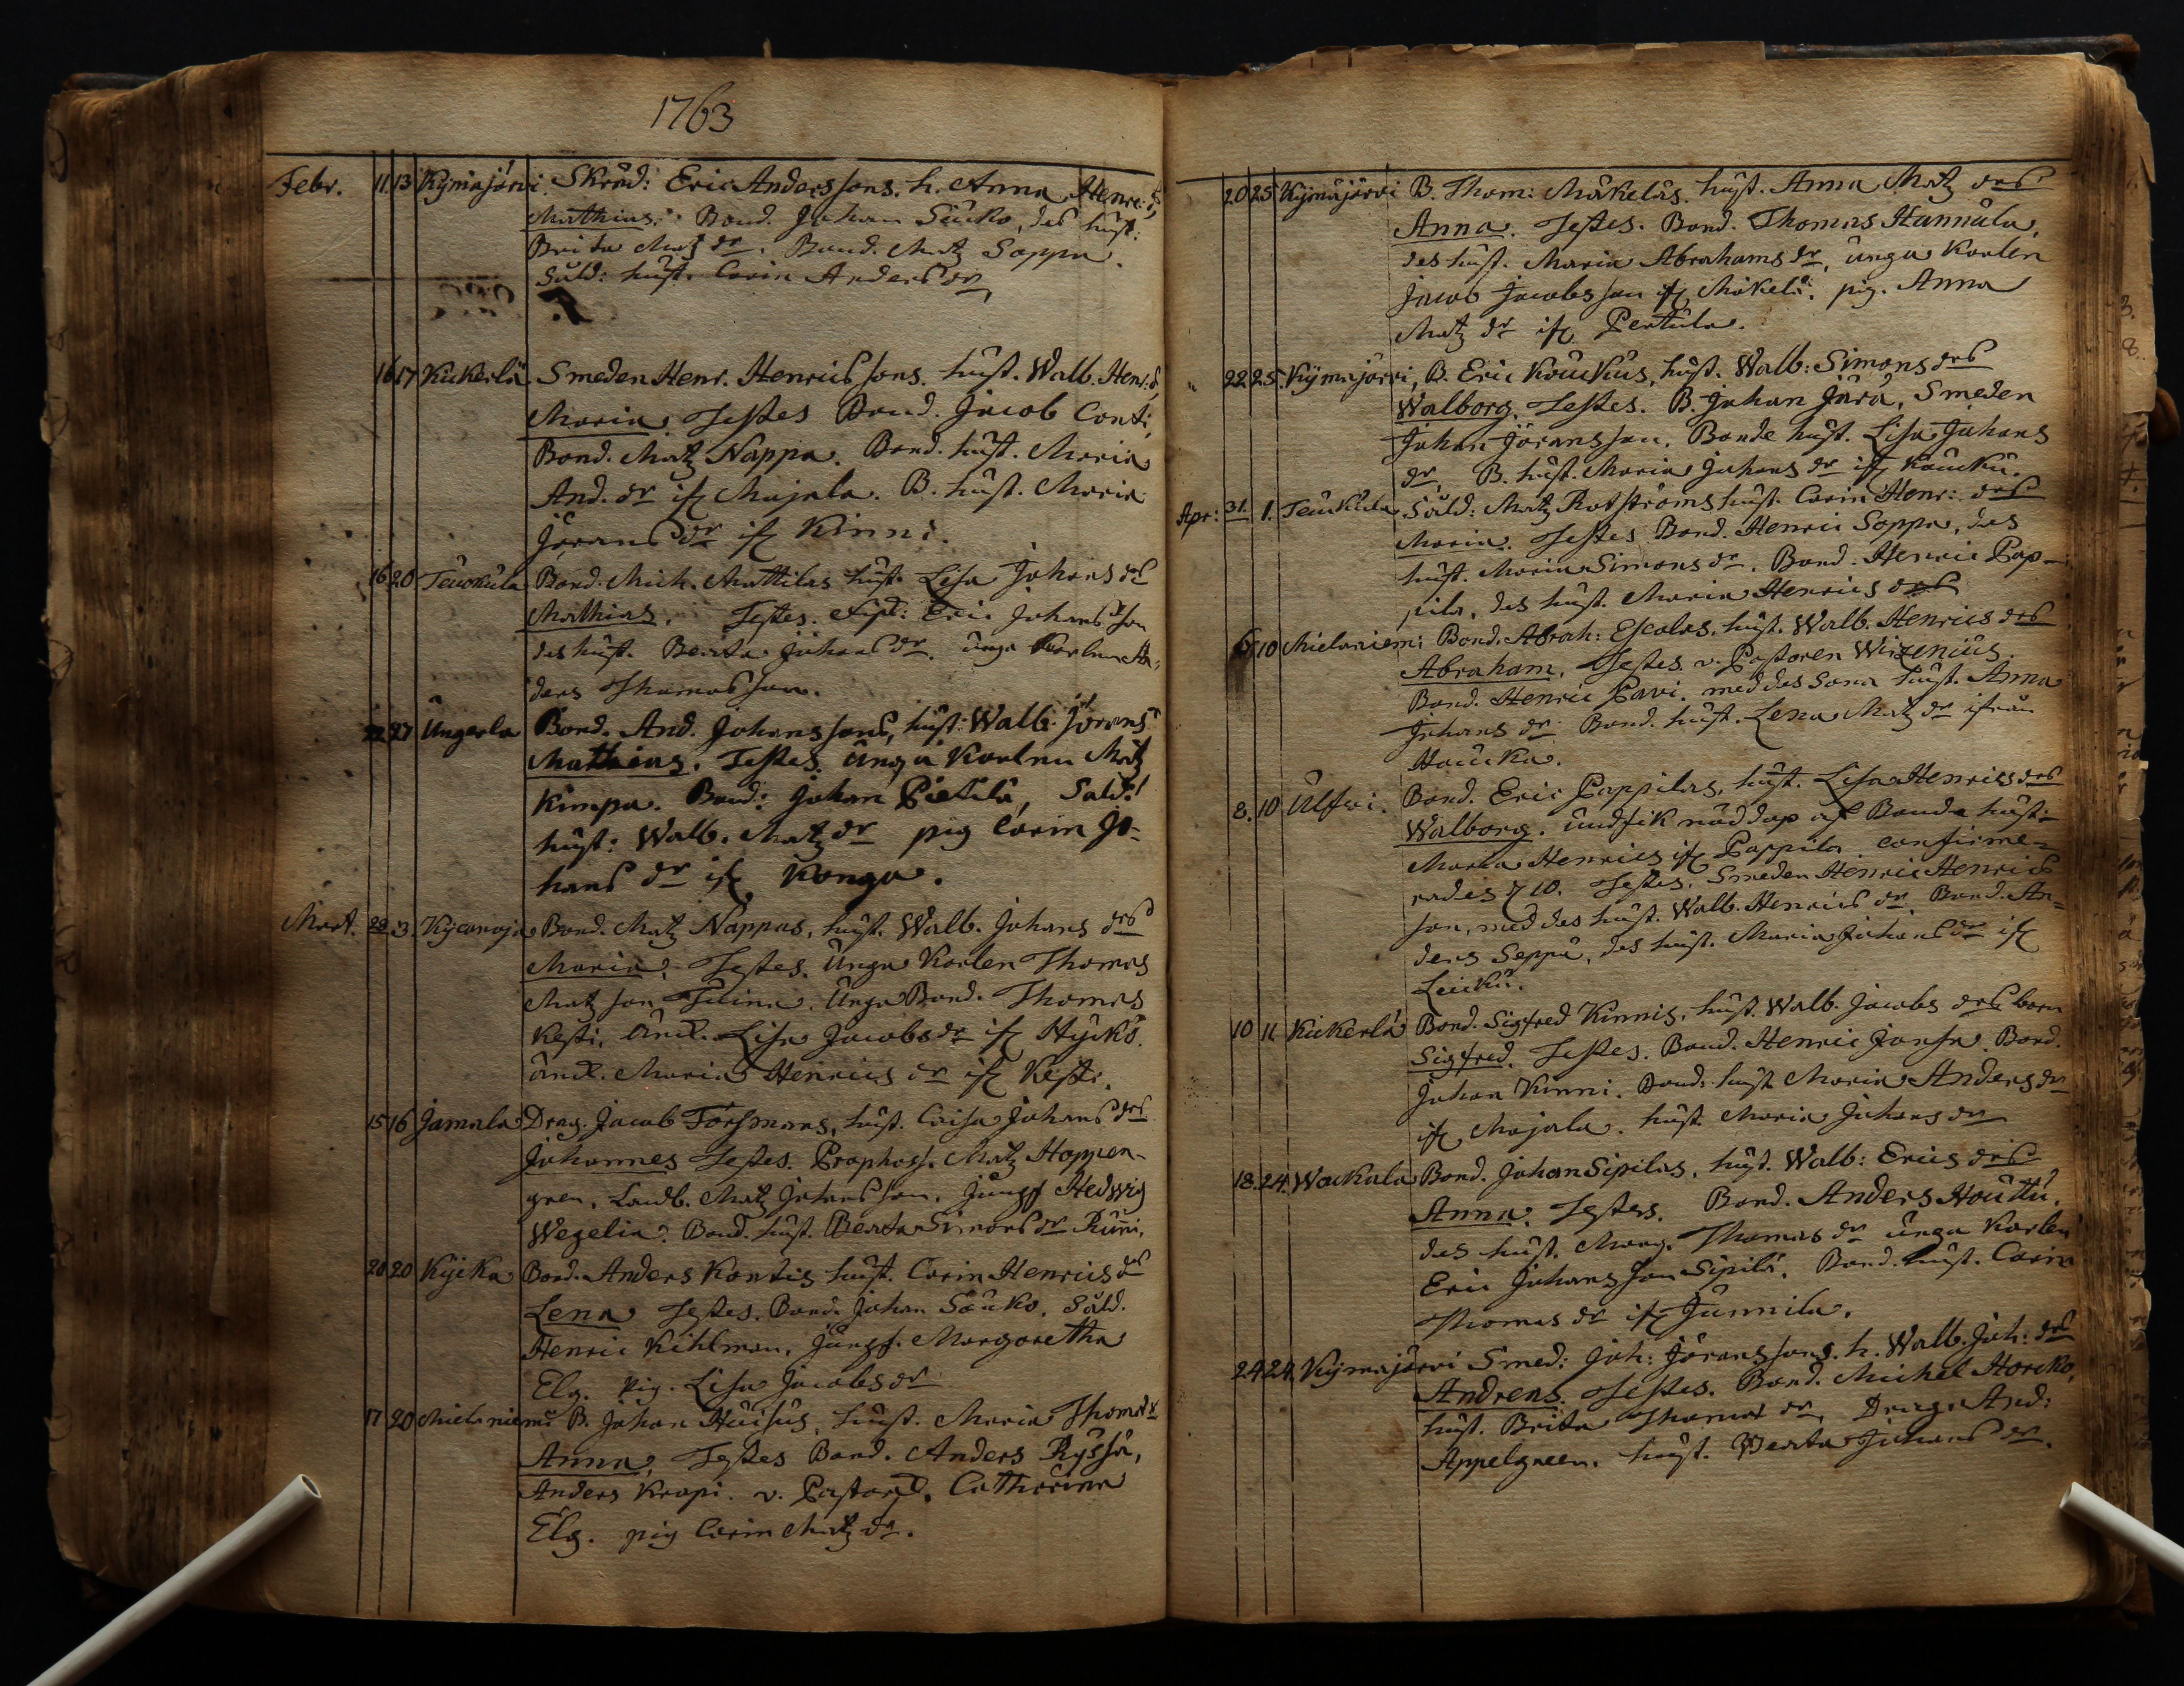 1763
Febr. 11. 13 Kymäjärvi. Skräd: Eric Anders sons. h. Anna Henr: ds
Mathias. Bond. Johan Seuko, des hust:
Brita Matz dr. Bond. Matz Soppa.
Såld: hust. Carin Anders dr
16 17 Kukerla. Smeden Henr. Henrics sons. hust. Walb. Henr: ds
Maria. Testes Bond. Jacob Conti,
Bond. Matz Nappa. Bond. hust. Maria
And. dr if Majala. B. hust. Maria
Jörans dr if Kinni.
16 20 Teuokula Bond. Mich. Mattilas hust. Lisa Johans drs
Mathias. Testes. Eric Johans son
des hust. Beata Johans dr. unga Karlen An-
ders Thomas son.
22 27 Ungerla Bond. And. Johans sons, hust: Walb. Jörans
Mathias. Testes. unga Karlen Matz
Kimpa. Bond: Johan Pietilä, Sald:
hust: Walb. Matz dr pig Carin Jo-
hans dr if Konga.
Mart. 28 3. Kycaroja Bond. Matz Nappas, hust. Walb. Johans drs
Maria. Testes. Unga Karlen Thomas
Matz son. Unga Bond. Thomas
Kesti. Lisa Jacobs dr if Hyckö.
Maria Henrics dr if Kesti.
15 16 Jamala Drag. Jacob Forsmans, hust. Caisa Johans drs
Johannes Testes. Prophoss. Matz Hoppen-
gren. Landb. Matz Johans son. Jungf Hedwig
Wegelia. Bond. hust. Beata Simons dr Runi.
20 20 Kyika Bond. Anders Kontis hust. Carin Henrics ds
Lena Testes. Bond. Johan Säuko. Såld.
Henric Kihlman. Jungf. Margaretha
Elg. Pig. Lisa Jacobs dr
17 20 Mielaniemi B. Johan Huisus, hust. Maria Thomæ dr
Anna. Testes Bond. Anders Ryssä,
Anders Krapi. v. Pastors d. Catharina
Elg. pig Carin Matz dr.
20 25 Kymäjärvi B. Thom: Mäkelas. hust. Anna Matz drs
Anna. Testes. Bond. Thomas Hannula,
des hust. Maria Abrahams dr, unga Karlen
Jacob Jacobs son if Mäkelä. pig. Anna
Matz dr if Perttula.
" 22 25 Kymajärvi, B. Eric Koukus, hust. Walb: Simons drs
Walborg. Testes. B. Johan Jära, Smeden
Johan Jörans son. Bonde hust. Lisa Johans
dr, B. hust. Maria Johans dr if Kouku.
Apr: 31. 1. Teukula Såld: Matz Rotströms hust. Carin Henr: drs
Maria. Testes Bond. Henric Soppa, des
hust. Maria Simons dr. Bond. Henric Pap-
pila, des hust. Maria Henrics drs
6 10 Mielaniemi Bond. Abrah: Escolas, hust. Walb. Henrics drs
Abraham. Testes v. Pastoren Wirzenius.
Bond. Henric Pavi. med des Sona hust. Anna
Johans dr. Bond. hust. Lena Matz dr ifrån
Haucka.
8. 10 Ulfwi. Bond. Eric Pappilas, hust. Lisa Henrics drs
Walborg. undfik nöddop af Bonde hust:
Maria Henrics if Pappila confirme-
rades d 10. Testes. Smeden Henric Henrics
son, med des hust. Walb. Henrics dr. Bond. An-
ders Seppä, des hust. Maria Johans dr if
Leiku.
10 11 Kukerla Bond. Sigfred Kinnis, hust. Walb. Jacobs drs barn
Sigfred. Testes. Bond. Henric Jansa. Bond.
Johan Kinni. Bond: hust Maria Anders dr
if Majala. hust. Maria Johans dr
18. 24. Wackala Bond. Johan Sipilas, hust. Walb: Erics drs
Anna. Testes. Bond. Anders Houttu,
des hust. Marg. Thomas dr unga Karlen
Eric Johans son Sipilä. Bond. hust. Carin
Thomas dr if Junnila.
24 24. Kymajärvi Smed: Joh: Jörans sons. h. Walb. Joh: drs
Andreas. Testes. Bond. Michel Horcko,
hust. Brita Thomæ dr, Drag. And:
Appelgreen. hust. Beata Johans dr.